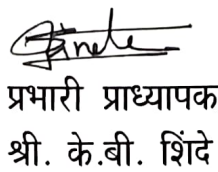 प्रभारी प्राध्यापक
श्री. के.बी. शिंदे